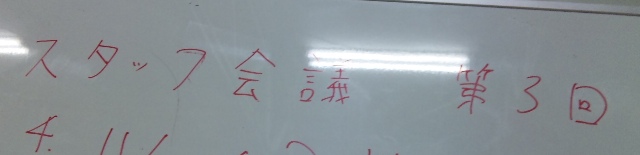 スタッフ会議 第3回
4.